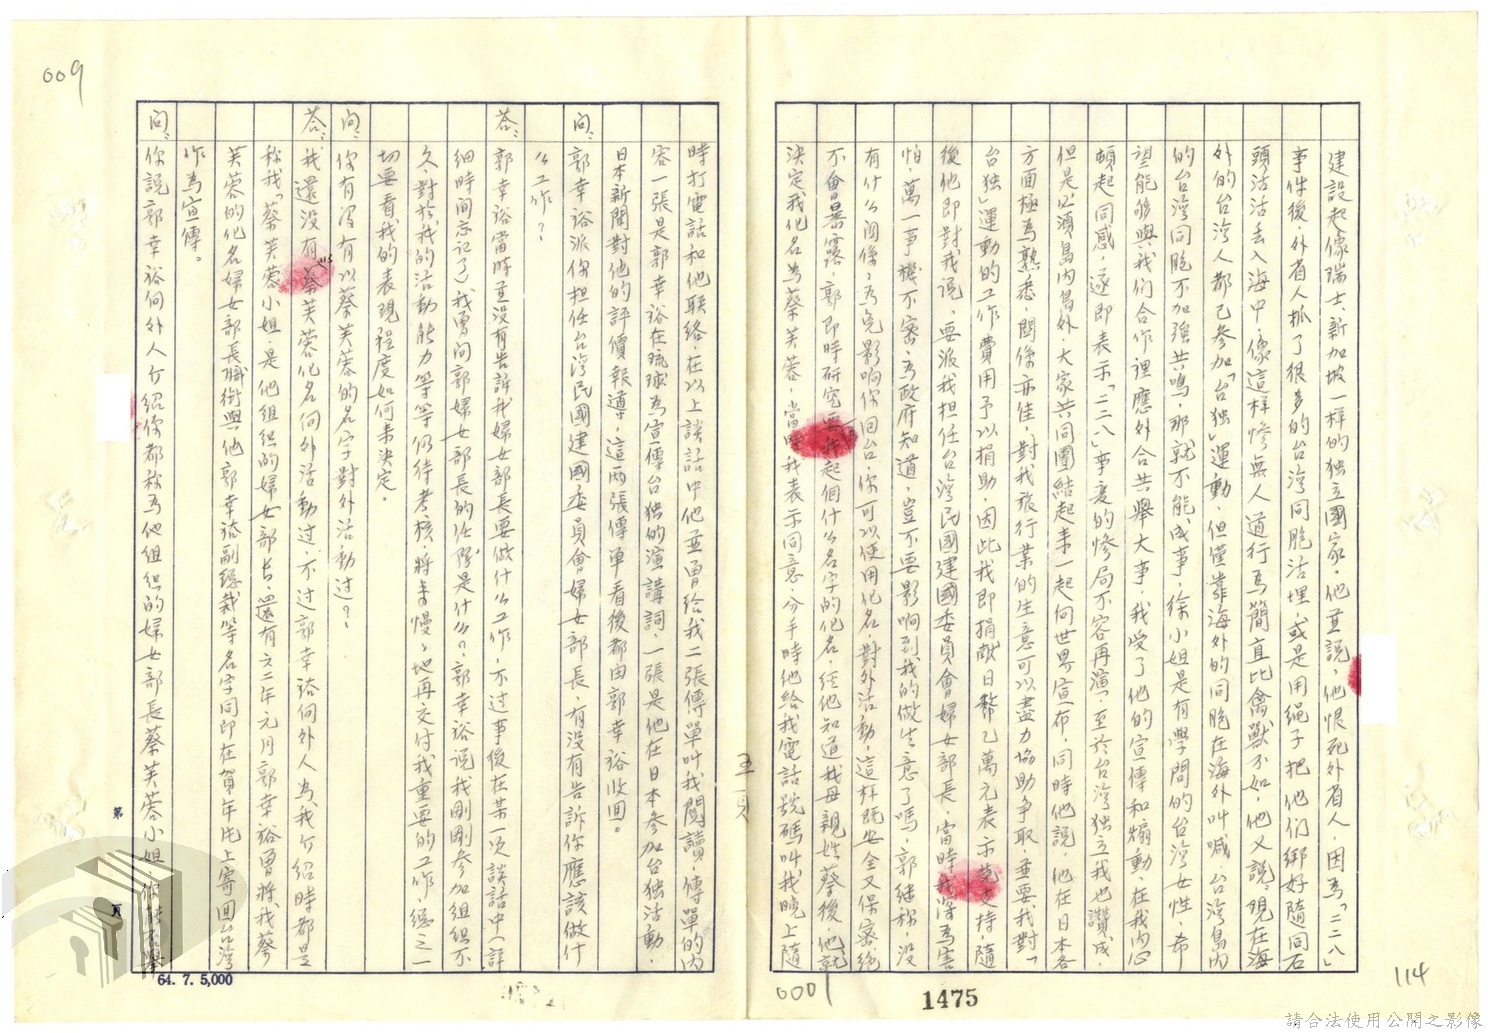 建設起像瑞士、新加坡一樣的独立國家。他並說，他恨死外省人，因為「二二八」
事件後，外省人抓了很多的台灣同胞活埋，或是用绳子把他们綁好隨同石
頭活活丢入海中，像這样惨無人道行為簡直比禽獸不如，他又說，現在海
外的台灣人都已参加「台独」運動，但僅靠海外的同胞在海外叫喊，台灣島内
的台灣同胞不加強共鳴，那就不能成事，徐小姐是有學問的台灣女性，希
望能够與我们合作裡應外合共舉大事，我受了他的宣傳和煽動，在我内心
頓起同感，遂即表示「二二八」事変的惨局不容再演，至於台灣独立我也讚成，
但是必須島内島外，大家共同團結起來一起向世界宣佈，同時他説，他在日本各
方面極為熟悉，関係亦佳，對我旅行業的生意可以盡力協助争取，並要我對「
台独」運動的工作費用予以捐助，因此我即捐献日幣乙萬元表示支持，隨
後他即對我说，要派我担任台湾民國建國委員會婦女部長，當時我深為害
怕，萬一事機不密，為政府知道，豈不要影响到我的做生意了嗎，郭継称，没
有什么関係，為免影响你回台，你可以使用化名，對外活動，這样既安全又保密絕
不會暴露，郭即時研究要我起個什么名字的化名，経他知道我母親姓蔡後，他就
決定我化名為蔡芙蓉，當時我表示同意，分手時他給我電話號碼叫我晚上隨
時打電話和他联络，在以上談話中他並曾给我二張傳單叫我閱讀，傳單的内
容一張是郭幸裕在琉球為宣傳台独的演講詞，一張是他在日本参加台独活動，
日本新聞對他的評價報導，這两張傳單看後都由郭幸裕收回。
問：郭幸裕派你担任台湾民國建國委員會婦女部長，有没有告訴你應該做什
么工作？
荅：郭幸裕當時並没有告訴我婦女部長要做什么工作，不过事後在某一次談話中（詳
細時间忘记了）我曾问郭婦女部長的任務是什么？，郭幸裕说我剛剛参加组织不
久，對於我的活動能力等等仍待考核，將来慢慢地再交付我重要的工作，總之一
切要看我的表現程度如何来決定。
問：你有没有以蔡芙蓉的名字對外活動过？
荅：我還没有以蔡芙蓉化名向外活動过，不过郭幸裕向外人為我介紹時都是
称我「蔡芙蓉小姐，是他组织的婦女部長，還有六二年元月郭幸裕曾將我蔡
芙蓉的化名婦女部長職銜與他郭幸裕副總裁等名字同印在賀年片上寄回台灣
作為宣傳。
問：你說郭幸裕向外人介紹你都称為他組織的婦女部長蔡芙蓉小姐，你能否舉
009
五頁
0001
1475
114
第
頁
64. 7. 5,000
請合法使用公開之影像